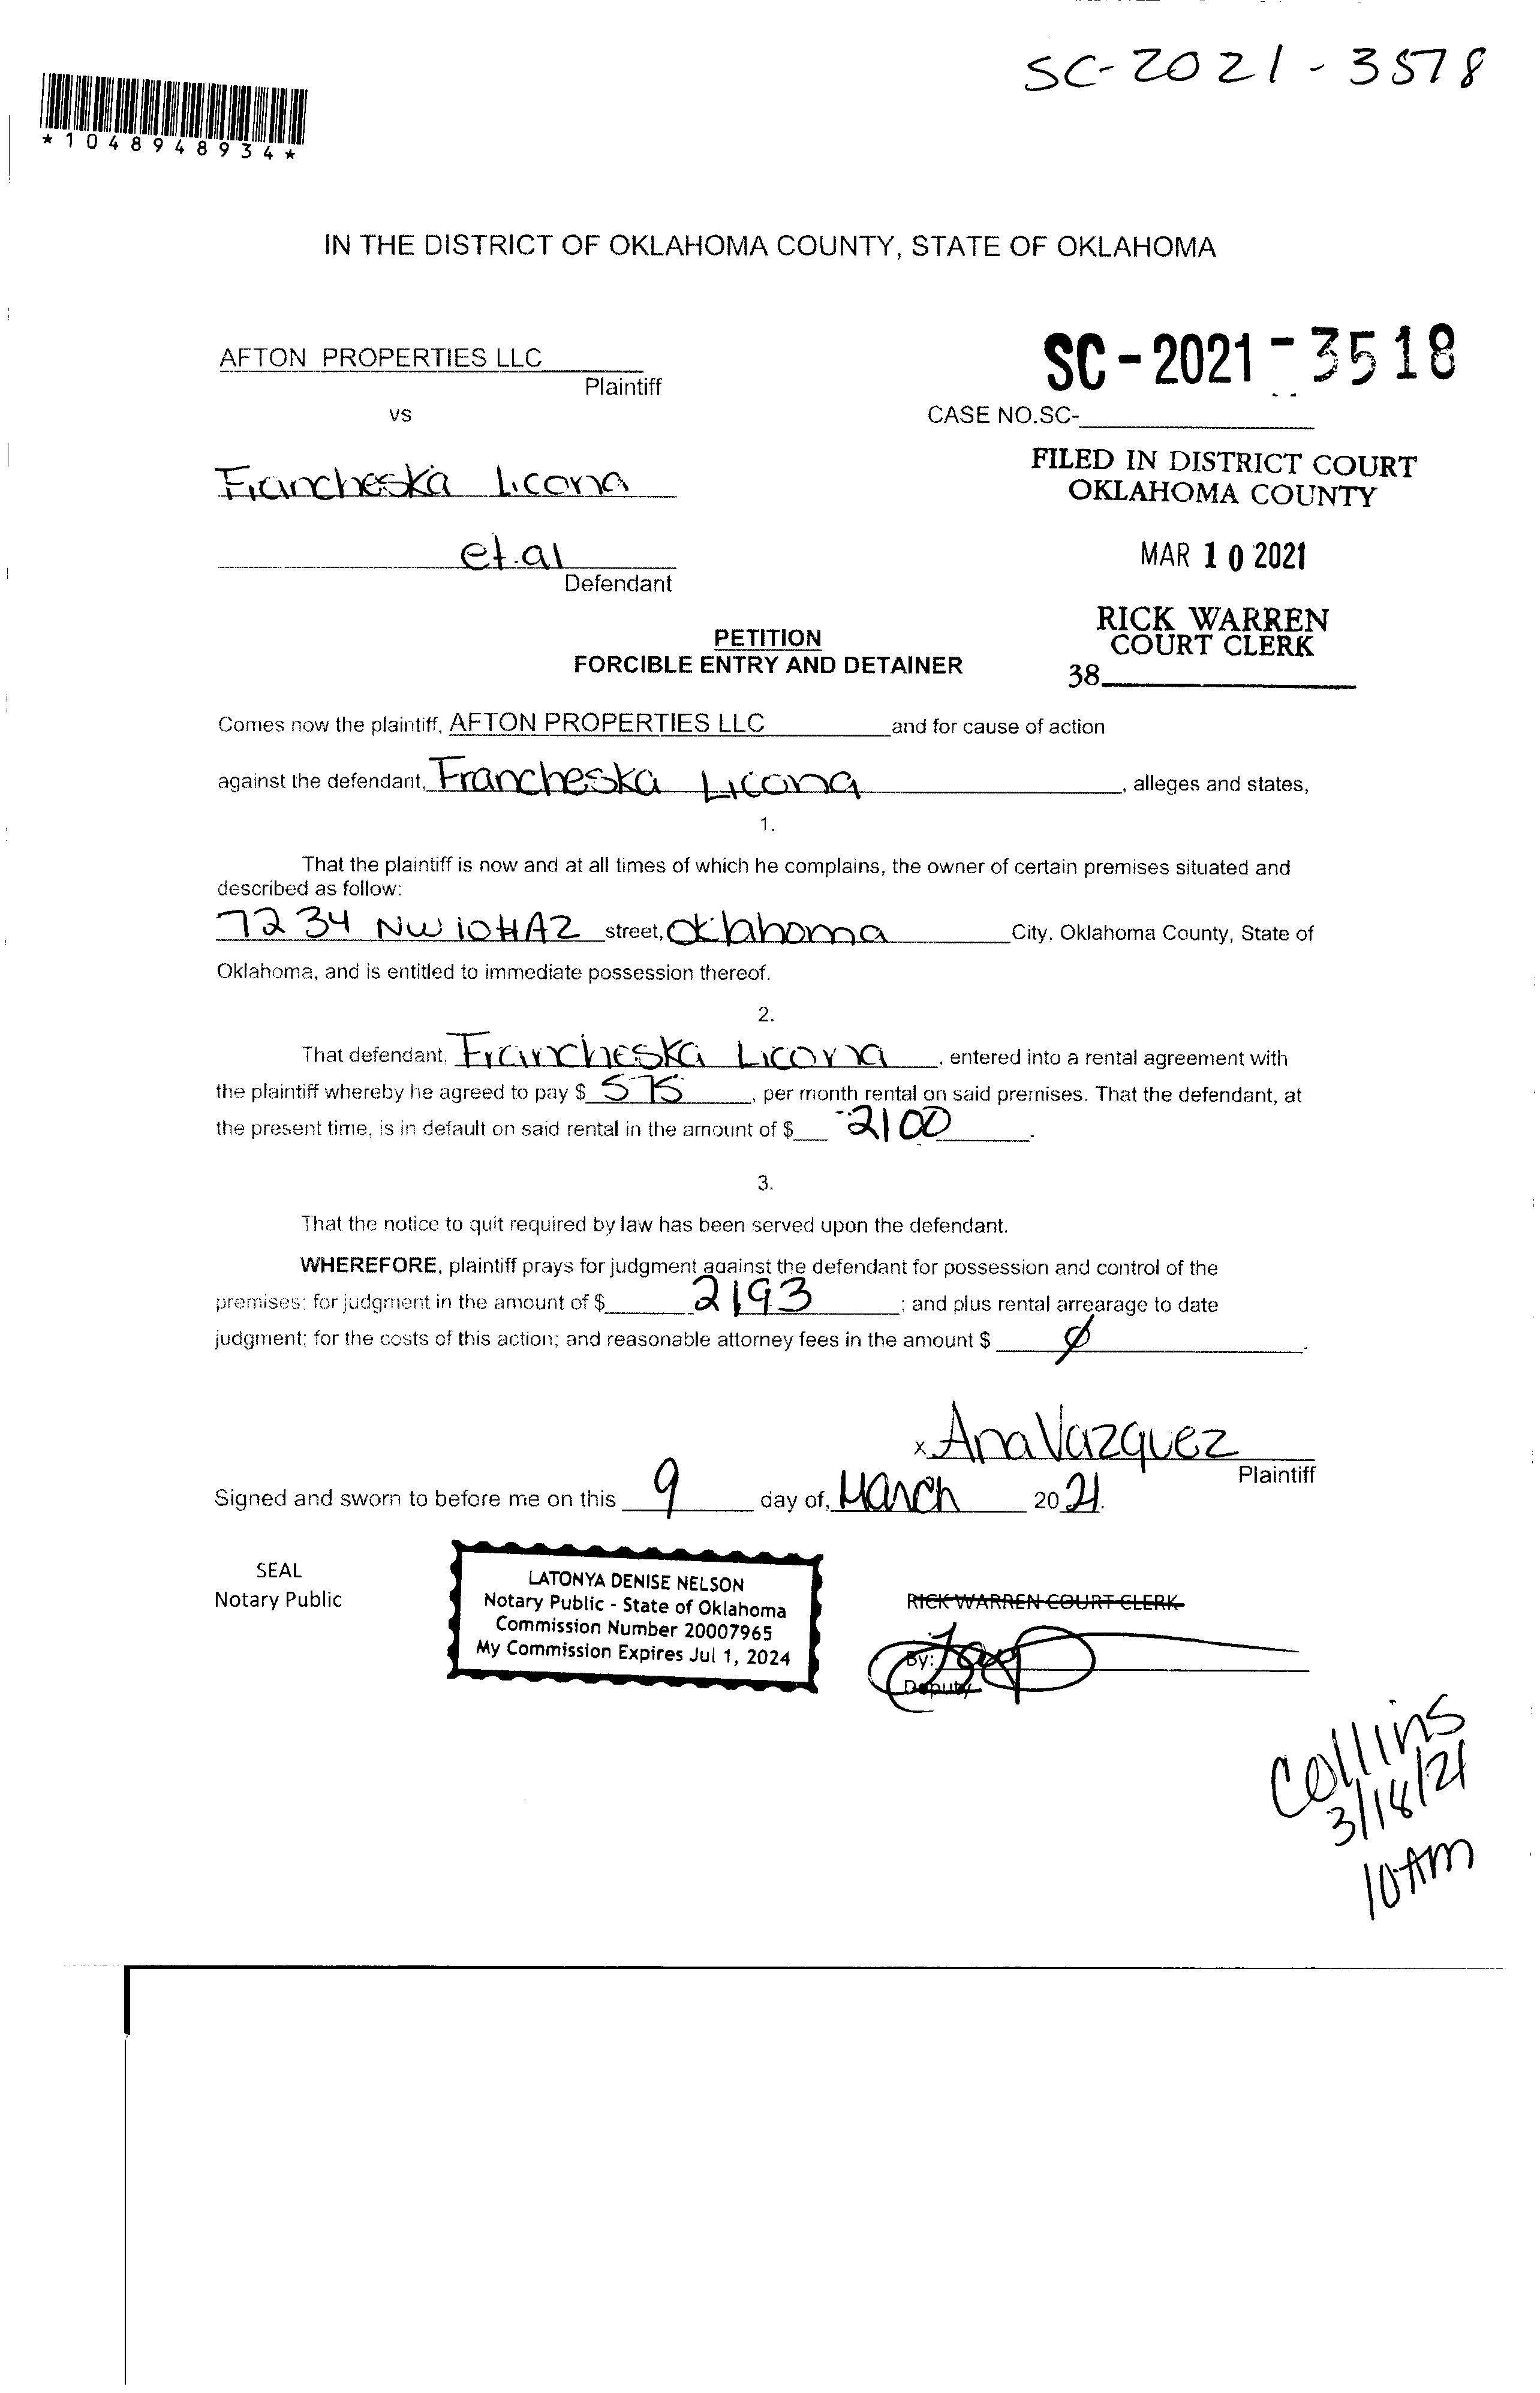 SC-2021-3578
*1048948934*
IN THE DISTRICT OF OKLAHOMA COUNTY, STATE OF OKLAHOMA
AFTON PROPERTIES LLC
Plaintiff
vs
SC-2021-3518
CASE NO.SC-
Francheska Licona
FILED IN DISTRICT COURT
OKLAHOMA COUNTY
et.al
Defendant
MAR 10 2021
RICK WARREN
COURT CLERK
38
PETITION
FORCIBLE ENTRY AND DETAINER
Comes now the plaintiff, AFTON PROPERTIES LLC and for cause of action
against the defendant, Francheska Licona, alleges and states,
1.
That the plaintiff is now and at all times of which he complains, the owner of certain premises situated and
described as follow:
7234 NW 10 #A2 street, Oklahoma City, Oklahoma County, State of
Oklahoma, and is entitled to immediate possession thereof.
2.
That defendant, Francheska Licona, entered into a rental agreement with
the plaintiff whereby he agreed to pay $ 575, per month rental on said premises. That the defendant, at
the present time, is in default on said rental in the amount of $ 2100.
3.
That the notice to quit required by law has been served upon the defendant.
WHEREFORE, plaintiff prays for judgment against the defendant for possession and control of the
premises; for judgment in the amount of $ 2193; and plus rental arrearage to date
judgment; for the costs of this action; and reasonable attorney fees in the amount $ ∅.
x Ana Vazquez
Plaintiff
Signed and sworn to before me on this 9 day of, March 2021.
SEAL
Notary Public
LATONYA DENISE NELSON
Notary Public - State of Oklahoma
Commission Number 20007965
My Commission Expires Jul 1, 2024
RICK WARREN COURT CLERK
By:
Deputy
Collins
3/18/21
10 AM